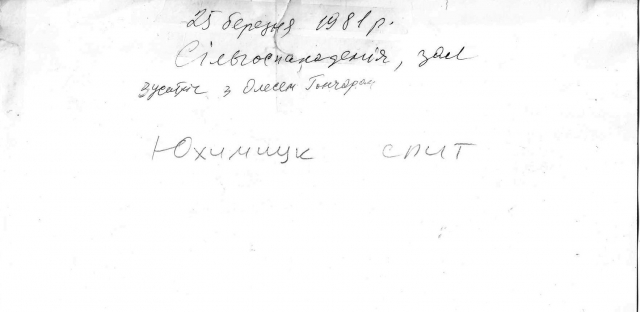 25 березня 1981 р.
Сільгоспакадемія, зал
зустріч з Олесем Гончаром
Юхимчук спит